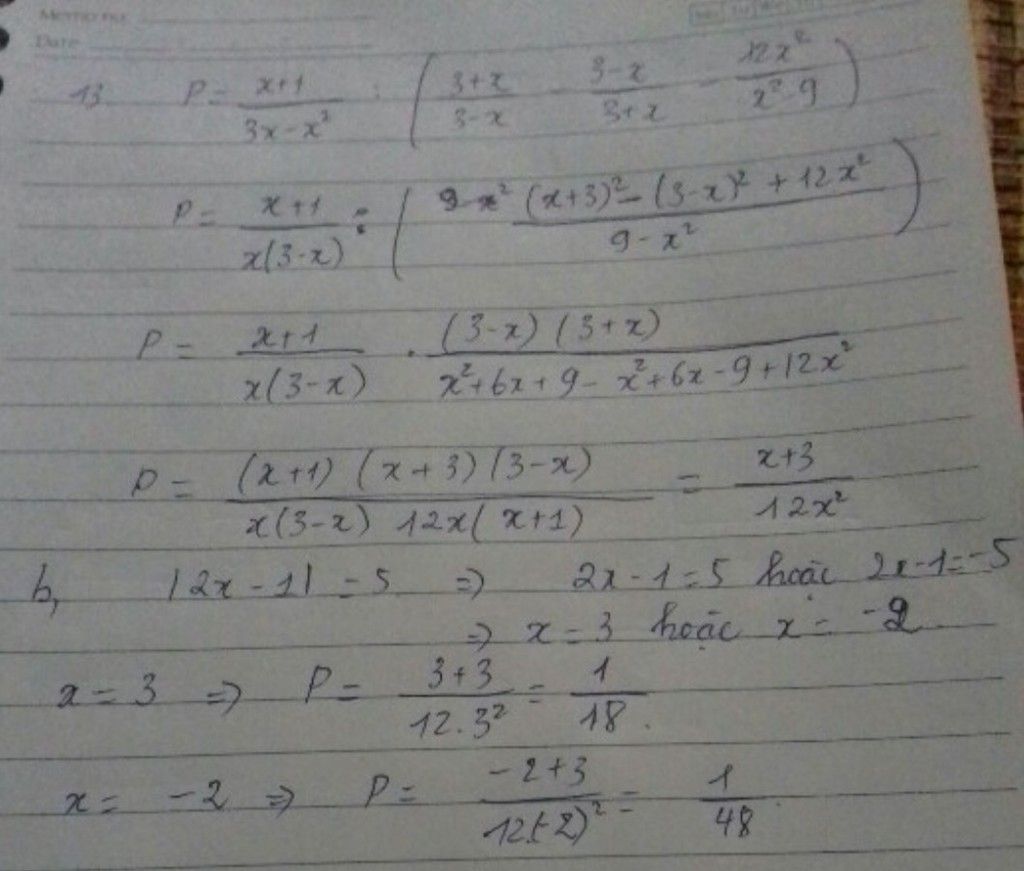 Date
13. P = \frac{x+1}{3x-x^2} : ( \frac{3+x}{3-x} - \frac{3-x}{3+x} - \frac{12x^2}{x^2-9} )
P = \frac{x+1}{x(3-x)} : ( \frac{(x+3)^2 - (3-x)^2 + 12x^2}{9-x^2} )
P = \frac{x+1}{x(3-x)} . \frac{(3-x)(3+x)}{x^2+6x+9-x^2+6x-9+12x^2}
P = \frac{(x+1)(x+3)(3-x)}{x(3-x) 12x(x+1)} = \frac{x+3}{12x^2}
b, |2x-1| = 5 => 2x-1=5 hoặc 2x-1=-5
=> x = 3 hoặc x = -2
x = 3 => P = \frac{3+3}{12.3^2} = \frac{1}{18}.
x = -2 => P = \frac{-2+3}{12(-2)^2} = \frac{1}{48}